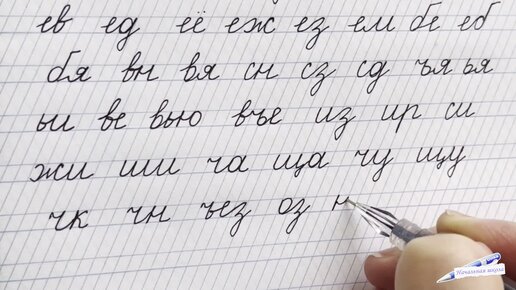 ев ед её еж ез ем бе еб
бя вн вя сн сз сд ъя ья
ьи ве вью въе из ир си
жи ши ча ща чу щу
чк чн ъез оз н
Начальная школа